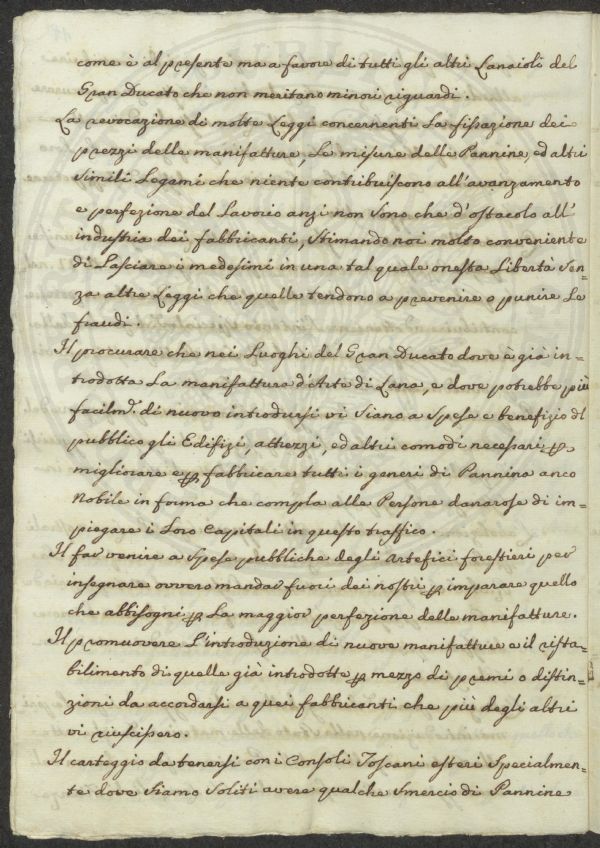 come è al presente ma a favore di tutti gli altri Lanaioli del
Gran Ducato che non meritano minori riguardi.
La revocazione di molte Leggi concernenti La fissazione dei
prezzi delle manifatture, Le misure delle Pannine, ed altri
Simili Legami che niente contribuiscono all'avanzamento
e perfezione del Lavorio anzi non Sono che d'ostacolo all'
industria dei fabbricanti, Stimando noi molto conveniente
di Lasciare i medesimi in una tal quale onesta Libertà Sen=
za altre Leggi che quelle tendono a prevenire o punire Le
fraudi.
Il procurare che nei Luoghi del Gran Ducato dove è già in=
trodotta La manifattura d'Arte di Lana, e dove potrebbe più
facilm.e di nuovo introdursi vi Siano a Spese e benefizio dl
pubblico gli Edifizi, attrezzi, ed altri comodi necessari p
migliorare e p fabbricare tutti i generi di Pannina anco
Nobile in forma che compla alle Persone danarose di im=
piegare i Loro Capitali in questo traffico.
Il far venire a Spese pubbliche degli Artefici forestieri per
insegnare ovvero mandar fuori dei nostri p imparare quello
che abbisogni p La maggior perfezione delle manifatture.
Il promuovere L'introduzione di nuove manifatture e il rista=
bilimento di quelle già introdotte p mezzo di premi o distin=
zioni da accordarsi a quei fabbricanti che più degli altri
vi riuscissero.
Il carteggio da tenersi con i Consoli Toscani esteri Specialmen=
te dove Siamo Soliti avere qualche Smercio di Pannine